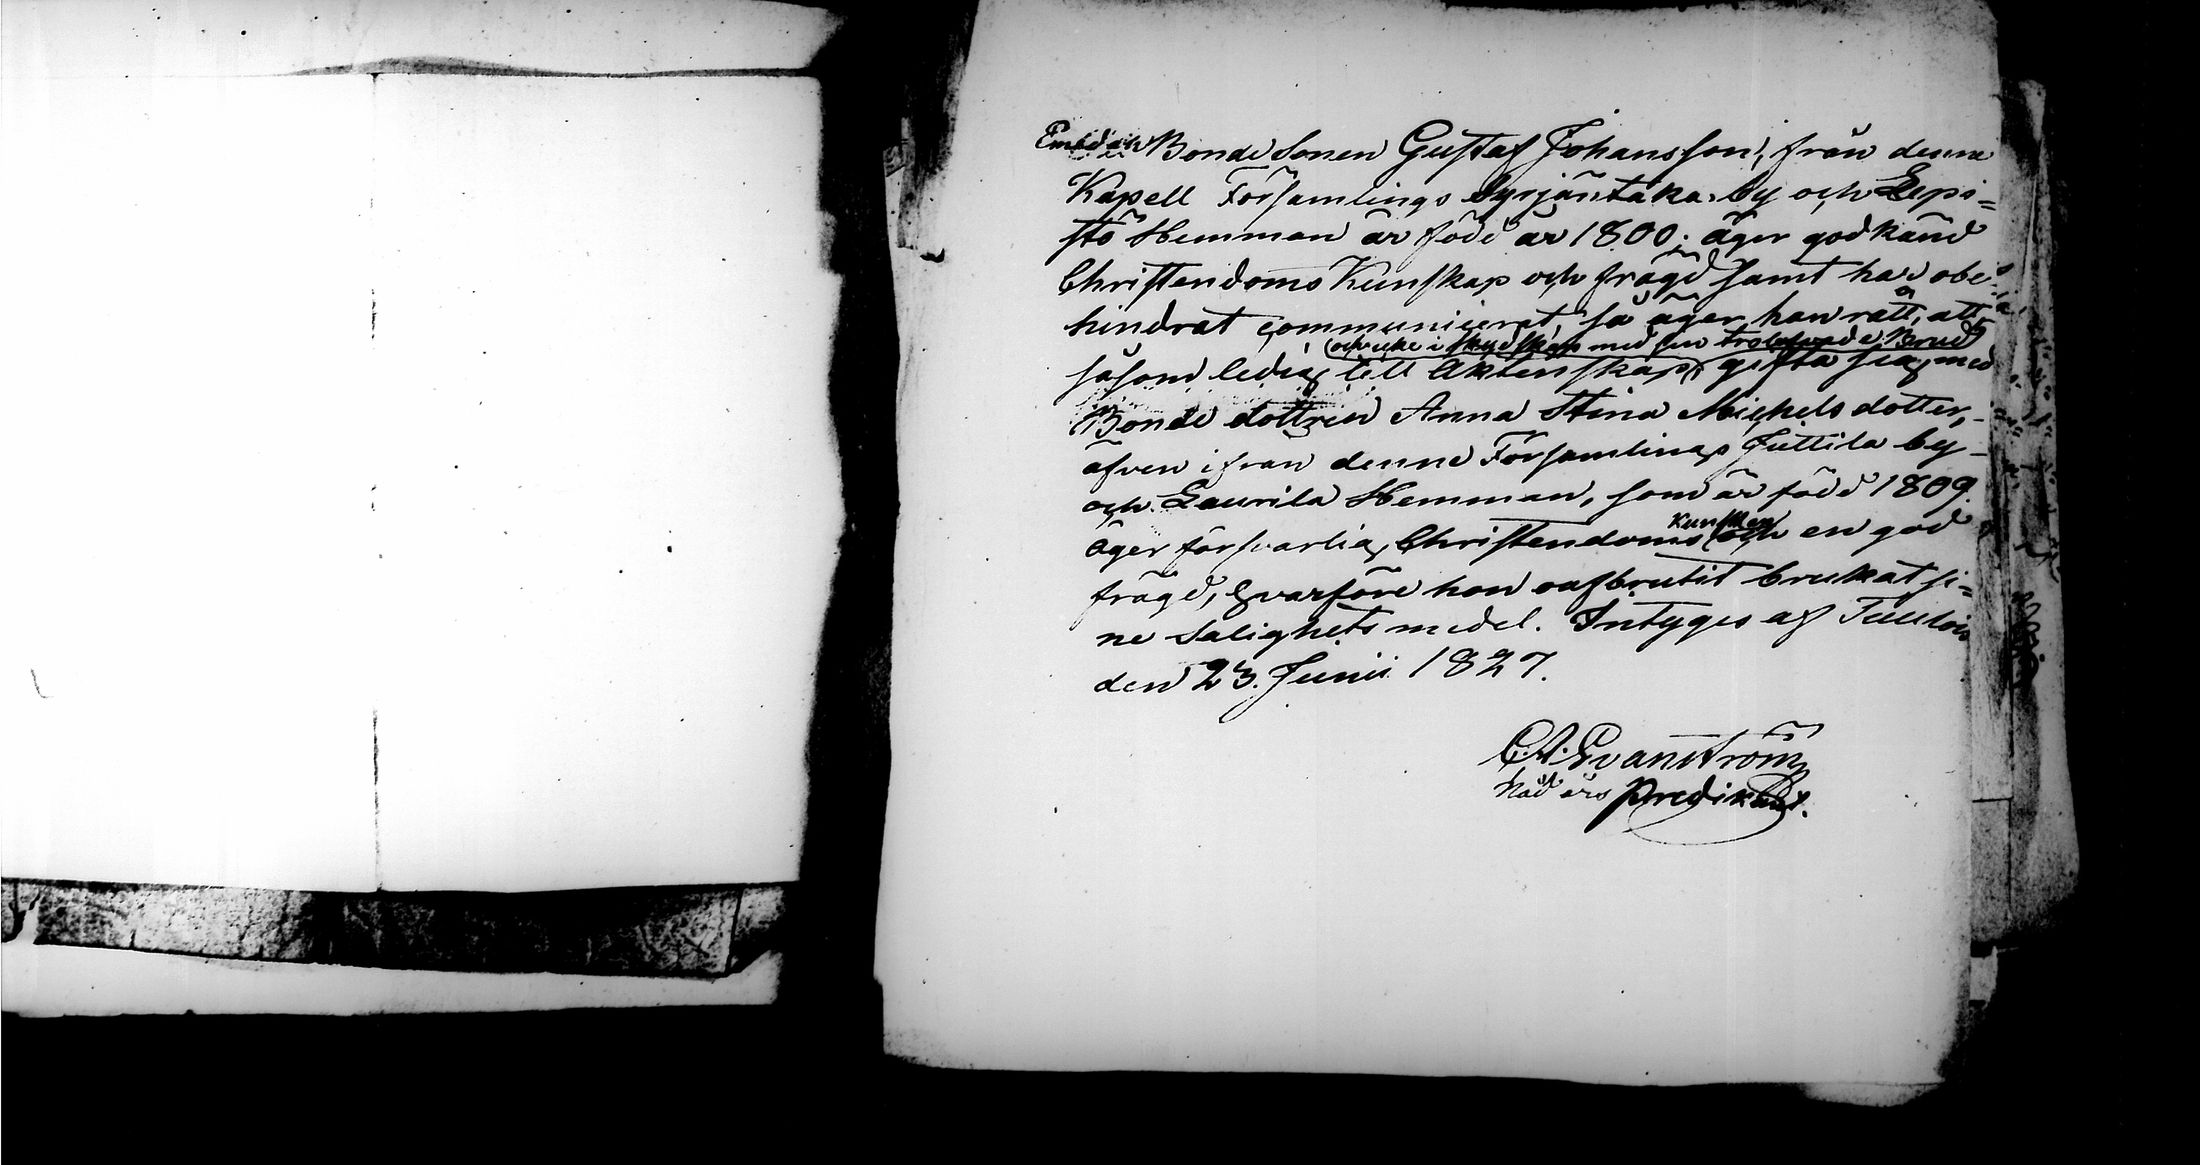 Emedan Bonde Sonen Gustaf Johansson, från denne
Kapell Församlings Syrjäntaka by och Lepi=
stö Hemman är född år 1800; äger godkänd
Christendoms Kunskap och frägd samt har obe=
hindrat communicerat, så äger han rätt, att
(och icke i skyldskap med sin trolofvade Brud)
såsom ledig till Äktenskap, gifta sig med
Bonde dottren Anna Stina Michelsdotter,
äfven ifrån denne Församlings Juttila by
och Laurila Hemman, som är född 1809.
Kunskap
äger försvarlig Christendoms och en god
frägd, hvarföre hon oafbrutit brukat si=
ne Salighets medel. Intygas af Tulois
den 23. Junii 1827.
C.A. Qvanström
Nåd års Predikant.